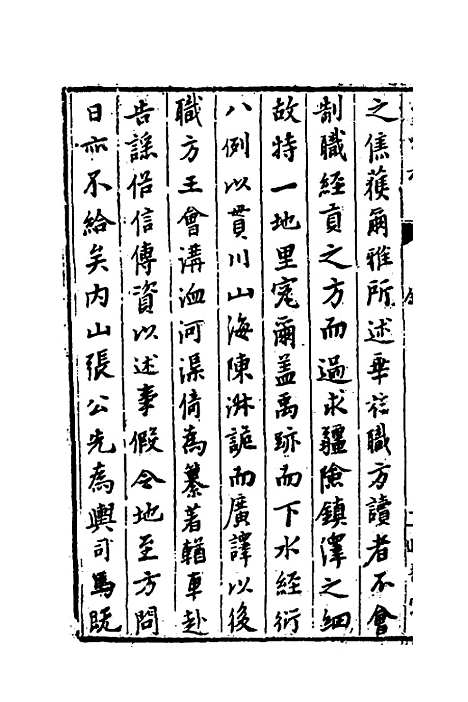 之焦蓷爾雅所述華祛職方讀者不會
制職經貢之方而過求疆險鎮澤之細
故特一地里寃爾蓋禹跡而下水經衍
八例以貫川山海陳淋詭而廣譯以後
職方王會溝洫河渠倚為纂著輶車赴
告謠俗信傳資以述事假令地至方問
日亦不給矣内山張公先為輿司馬既